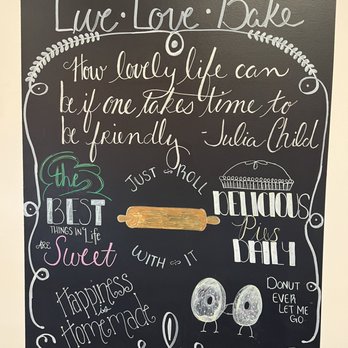 Live · Love · Bake
How lovely life can
be if one takes time to
be friendly - Julia Child
the
BEST
THINGS IN Life
ARE
Sweet
JUST ROLL
WITH IT
DELICIOUS
Pies
DAILY
Happiness
is
Homemade
DONUT
EVER
LET ME
GO